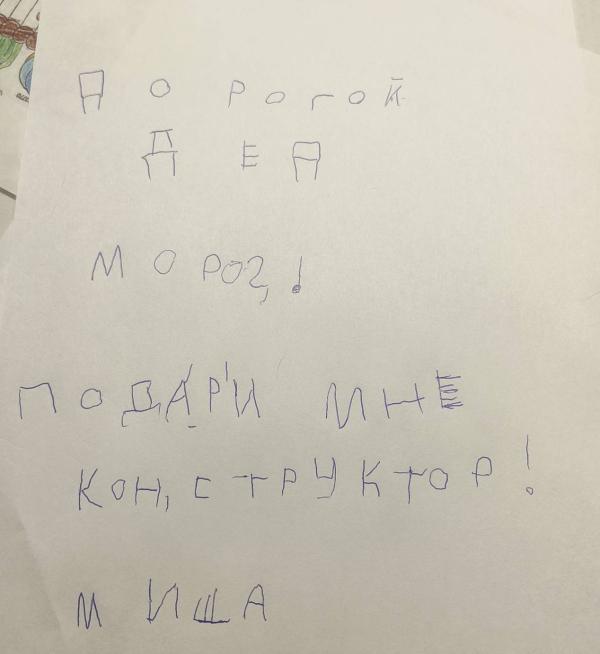 Дорогой
Дед
Мороз,!
Подари мне
кон,структор!
Миша